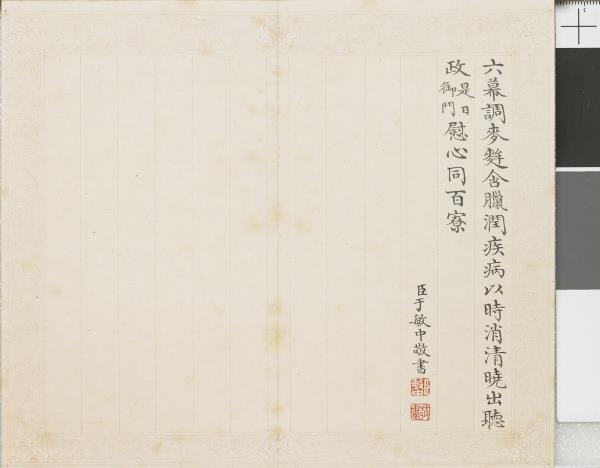 六幕調麥麰含臘潤疾病以時消清曉出聽
政是日御門慰心同百寮
臣于敏中敬書